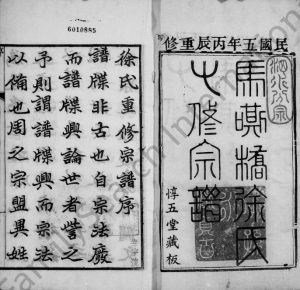 6010885
民國五年丙辰重修
馬嘶橋徐氏
七修宗譜
惇五堂藏板
徐氏重修宗譜序
譜牒非古也自宗法廢
而譜牒興論世者訾之
予則謂譜牒興而宗法
以備也周之宗盟異姓